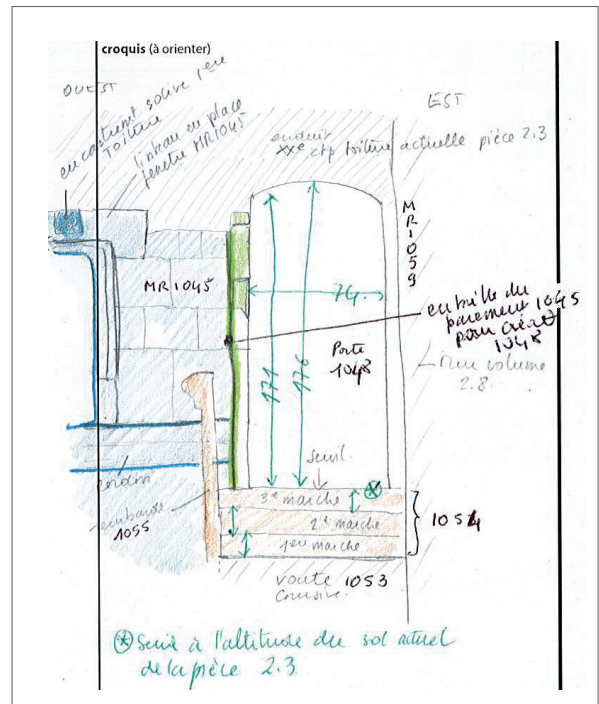 croquis (à orienter)
OUEST
encastrement solive 1ere
Toiture
linteau en place
fenêtre MR1045
EST
enduit
XXe ctp toiture actuelle pièce 2.3
MR1059
MR1045
74.
entaille du
parement 1045
pour créat°
1048
Porte
1048
171
176
mur volume
2.8.
seuil
cordon
3e marche
2e marche
1ere marche
1054
embauts
1055
voute 1053
Seuil à l'altitude du sol actuel
de la pièce 2.3.